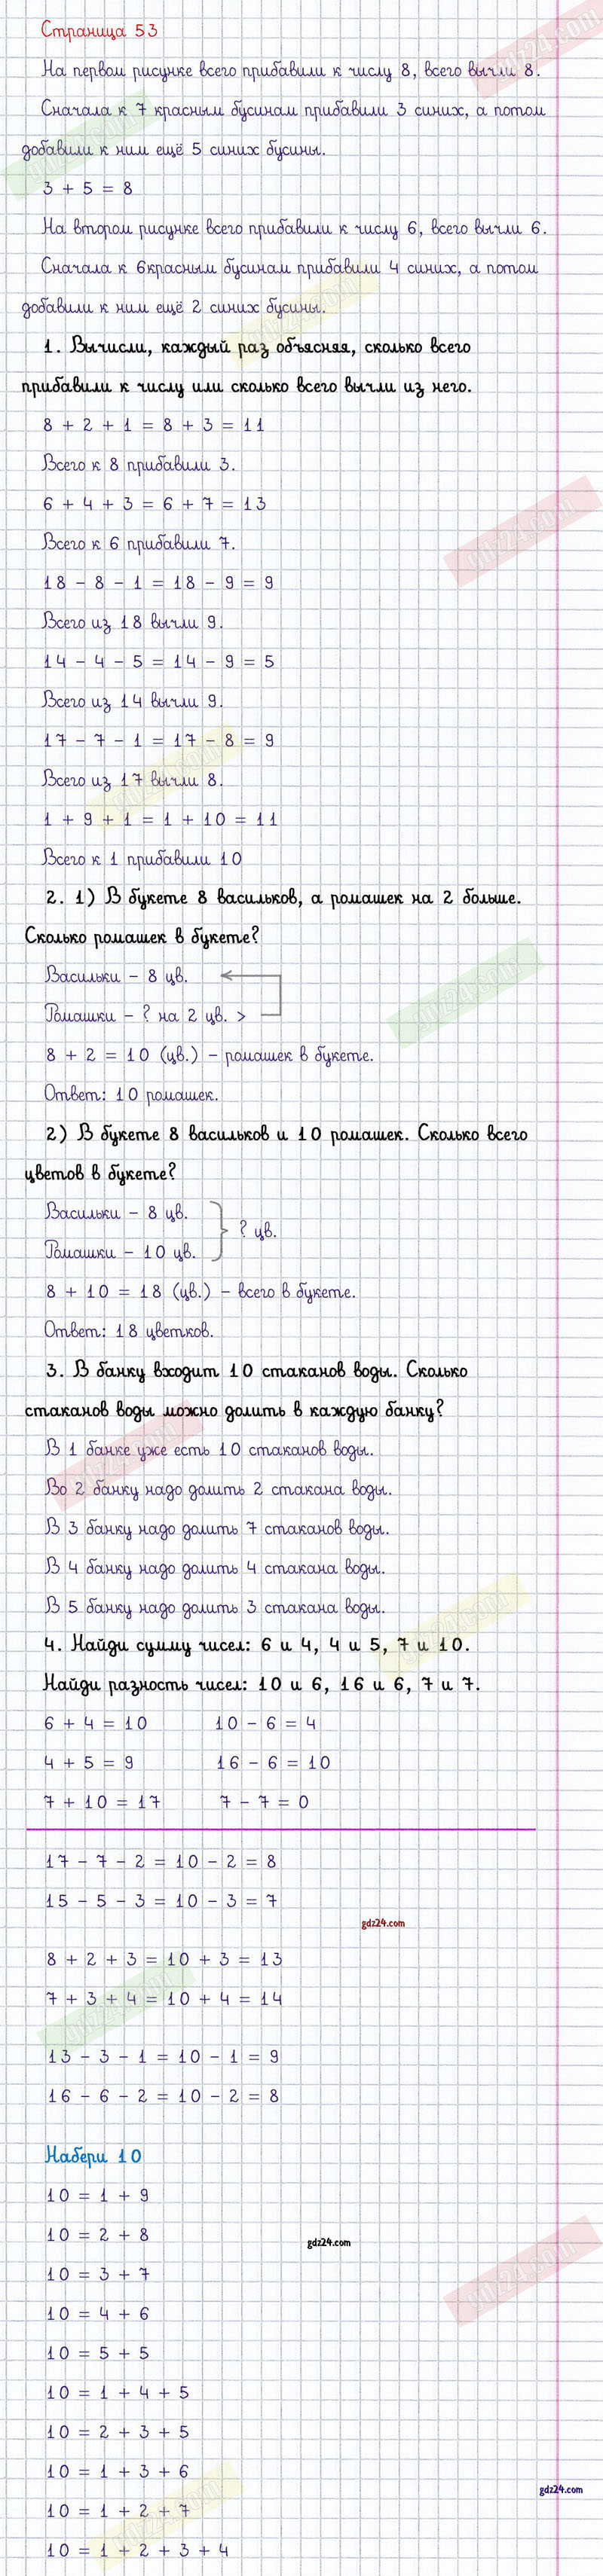 Страница 53
На первом рисунке всего прибавили к числу 8, всего вычли 8.
Сначала к 7 красным бусинам прибавили 3 синих, а потом
добавили к ним ещё 5 синих бусины.
3 + 5 = 8
На втором рисунке всего прибавили к числу 6, всего вычли 6.
Сначала к 6красным бусинам прибавили 4 синих, а потом
добавили к ним ещё 2 синих бусины.
1. Вычисли, каждый раз объясняя, сколько всего
прибавили к числу или сколько всего вычли из него.
8 + 2 + 1 = 8 + 3 = 11
Всего к 8 прибавили 3.
6 + 4 + 3 = 6 + 7 = 13
Всего к 6 прибавили 7.
18 - 8 - 1 = 18 - 9 = 9
Всего из 18 вычли 9.
14 - 4 - 5 = 14 - 9 = 5
Всего из 14 вычли 9.
17 - 7 - 1 = 17 - 8 = 9
Всего из 17 вычли 8.
1 + 9 + 1 = 1 + 10 = 11
Всего к 1 прибавили 10
2. 1) В букете 8 васильков, а ромашек на 2 больше.
Сколько ромашек в букете?
Васильки - 8 цв.
Ромашки - ? на 2 цв. >
8 + 2 = 10 (цв.) - ромашек в букете.
Ответ: 10 ромашек.
2) В букете 8 васильков и 10 ромашек. Сколько всего
цветов в букете?
Васильки - 8 цв.
? цв.
Ромашки - 10 цв.
8 + 10 = 18 (цв.) - всего в букете.
Ответ: 18 цветков.
3. В банку входит 10 стаканов воды. Сколько
стаканов воды можно долить в каждую банку?
В 1 банке уже есть 10 стаканов воды.
Во 2 банку надо долить 2 стакана воды.
В 3 банку надо долить 7 стаканов воды.
В 4 банку надо долить 4 стакана воды.
В 5 банку надо долить 3 стакана воды.
4. Найди сумму чисел: 6 и 4, 4 и 5, 7 и 10.
Найди разность чисел: 10 и 6, 16 и 6, 7 и 7.
6 + 4 = 10 10 - 6 = 4
4 + 5 = 9 16 - 6 = 10
7 + 10 = 17 7 - 7 = 0
17 - 7 - 2 = 10 - 2 = 8
15 - 5 - 3 = 10 - 3 = 7
gdz24.com
8 + 2 + 3 = 10 + 3 = 13
7 + 3 + 4 = 10 + 4 = 14
13 - 3 - 1 = 10 - 1 = 9
16 - 6 - 2 = 10 - 2 = 8
Набери 10
10 = 1 + 9
10 = 2 + 8
gdz24.com
10 = 3 + 7
10 = 4 + 6
10 = 5 + 5
10 = 1 + 4 + 5
10 = 2 + 3 + 5
10 = 1 + 3 + 6
gdz24.com
10 = 1 + 2 + 7
10 = 1 + 2 + 3 + 4